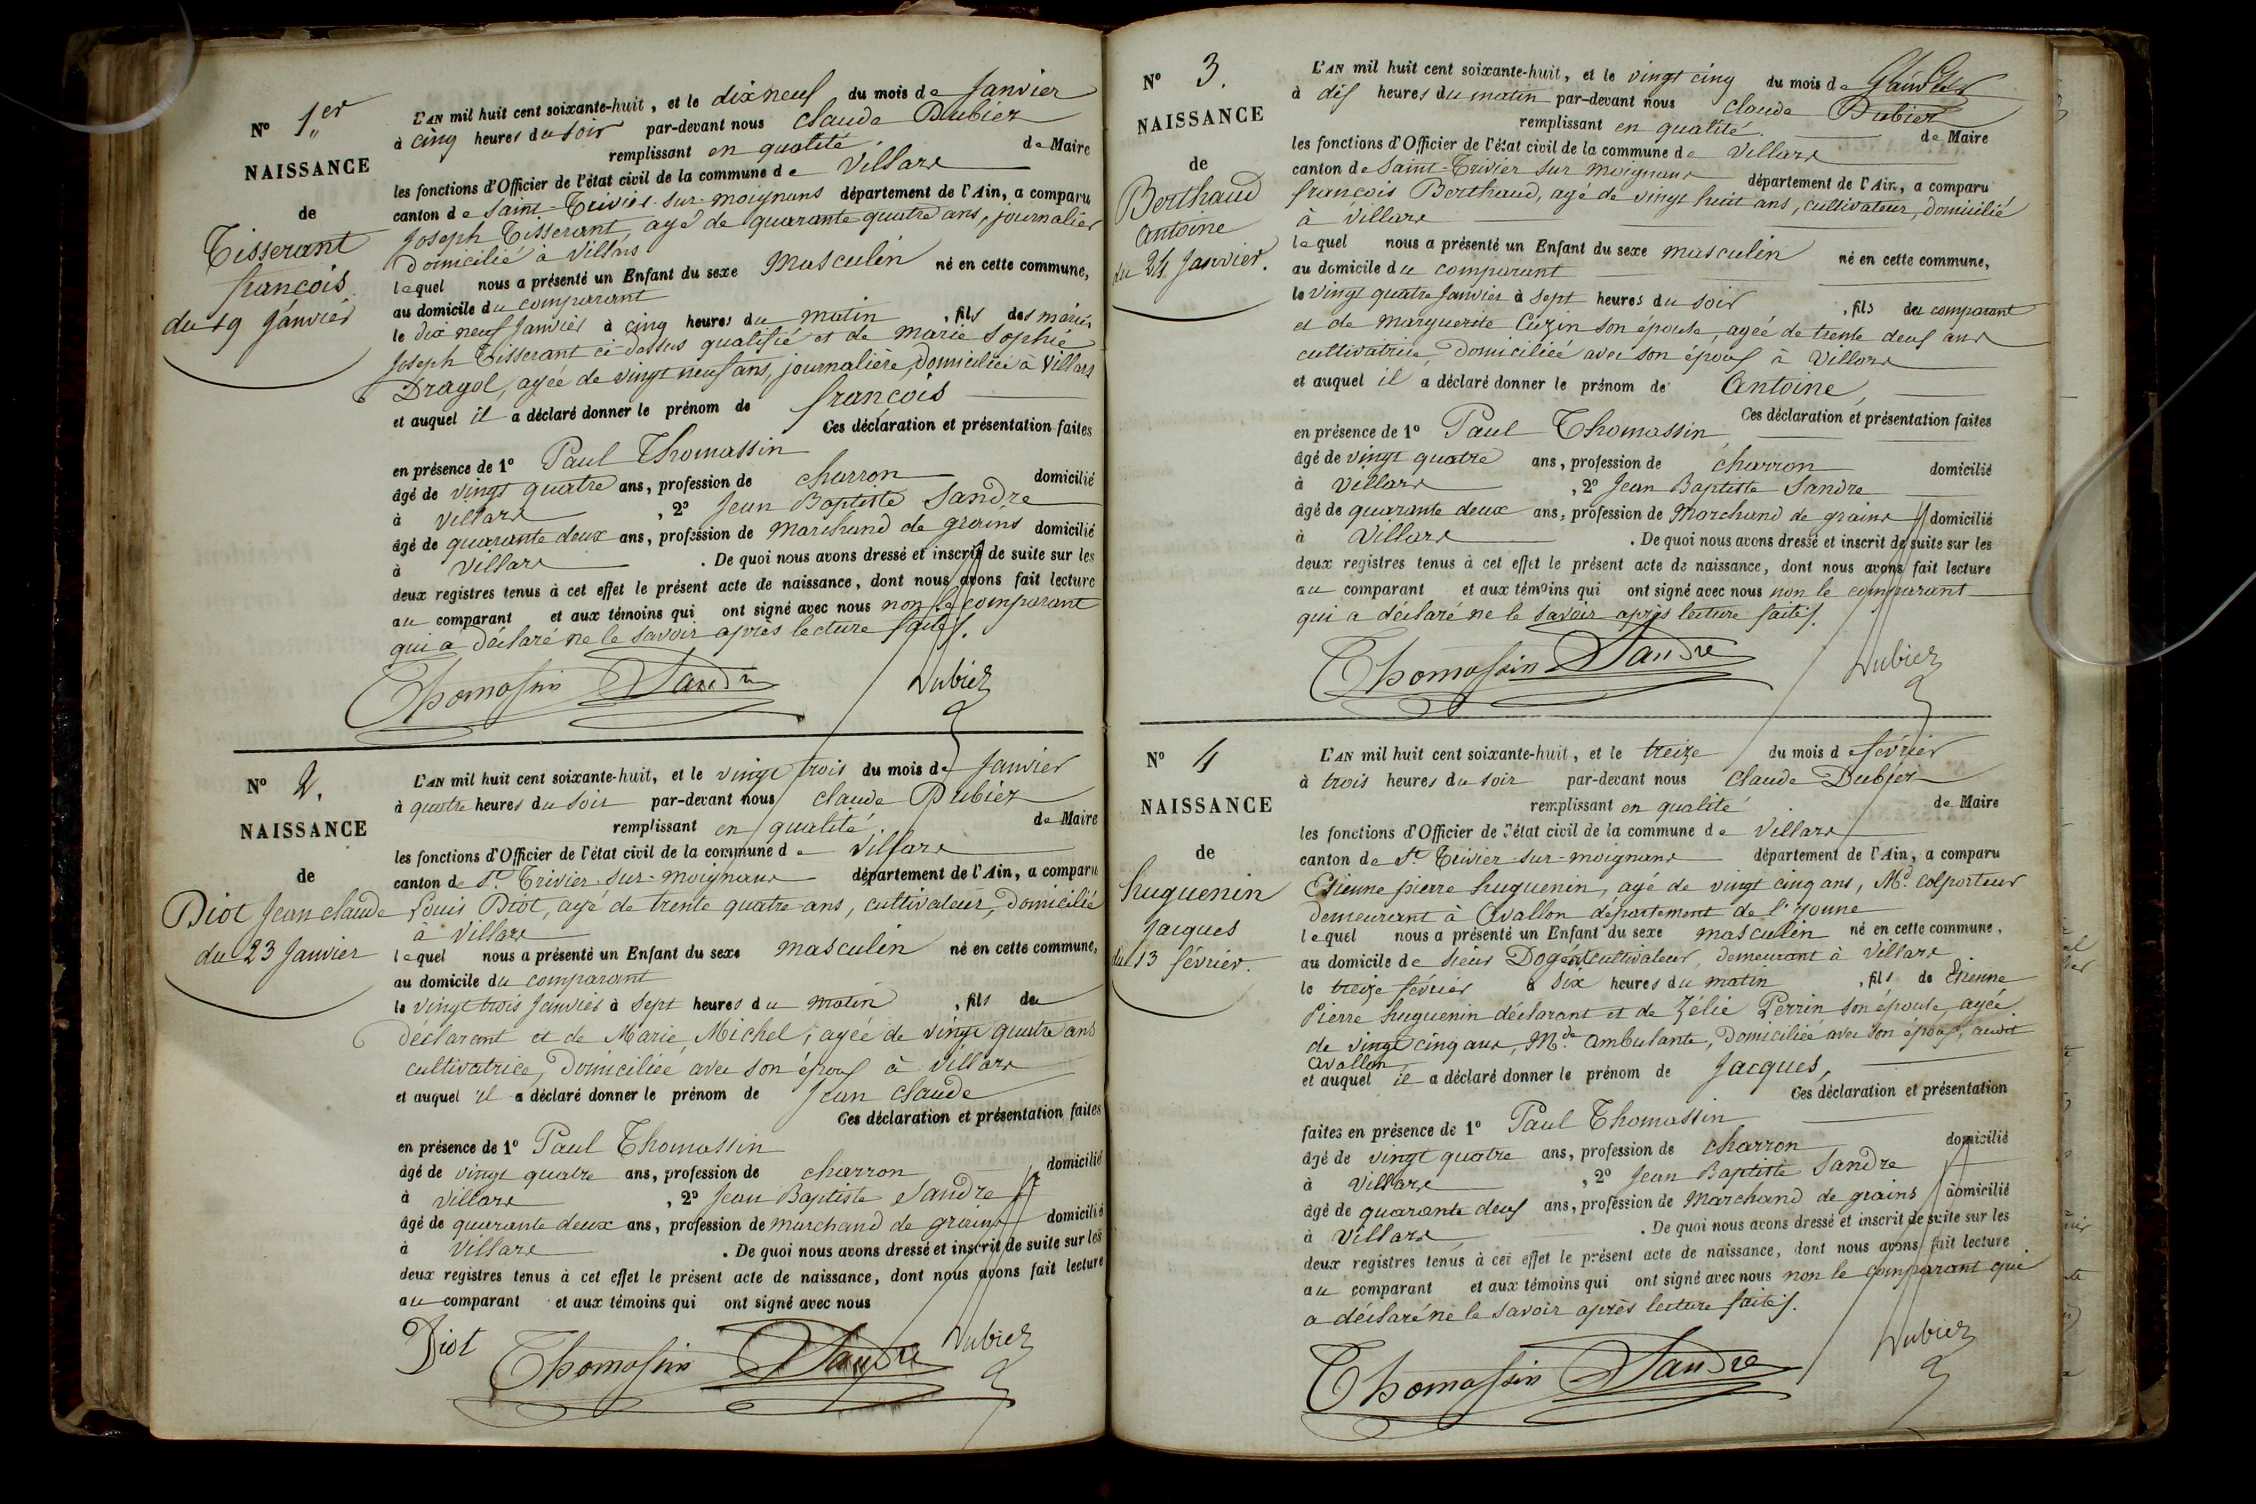 N° 1er
NAISSANCE
de
Tisserant
françois
du 19 Janvier
L'AN mil huit cent soixante-huit, et le dix neuf du mois de Janvier
à cinq heures du soir par-devant nous claude Dubiez
remplissant en qualité de Maire
les fonctions d'Officier de l'état civil de la commune de Villars
canton de Saint-Trivier-sur-moignans département de l'Ain, a comparu
Joseph Tisserant, agé de quarante quatre ans, journalier
domicilié à Villars
lequel nous a présenté un Enfant du sexe Masculin né en cette commune,
au domicile du comparant
le dix neuf Janvier à cinq heures du matin, fils des mariés
Joseph Tisserant ci-dessus qualifié et de marie Sophie
Dragol, agée de vingt neuf ans, journalière, domiciliée à Villars
et auquel il a déclaré donner le prénom de françois
Ces déclaration et présentation faites
en présence de 1° Paul Thomassin
âgé de vingt quatre ans, profession de charron domicilié
à Villars, 2° Jean Baptiste Sandre
âgé de quarante deux ans, profession de Marchand de grains domicilié
à Villars. De quoi nous avons dressé et inscrit de suite sur les
deux registres tenus à cet effet le présent acte de naissance, dont nous avons fait lecture
au comparant et aux témoins qui ont signé avec nous non le comparant
qui a déclaré ne le savoir après lecture faite.
Thomassin Sandre Dubiez
N° 2.
NAISSANCE
de
Diot Jean claude
du 23 Janvier
L'AN mil huit cent soixante-huit, et le vingt trois du mois de Janvier
à quatre heures du soir par-devant nous claude Dubiez
remplissant en qualité de Maire
les fonctions d'Officier de l'état civil de la commune de Villars
canton de St Trivier-sur-moignans département de l'Ain, a comparu
Louis Diot, agé de trente quatre ans, cultivateur, domicilié
à Villars
lequel nous a présenté un Enfant du sexe masculin né en cette commune,
au domicile du comparant
le vingt trois Janvier à sept heures du matin, fils du
déclarant et de Marie Michel, agée de vingt quatre ans
cultivatrice, domiciliée avec son époux à Villars
et auquel il a déclaré donner le prénom de Jean claude
Ces déclaration et présentation faites
en présence de 1° Paul Thomassin
âgé de vingt quatre ans, profession de charron domicilié
à Villars, 2° Jean Baptiste Sandre
âgé de quarante deux ans, profession de marchand de grains domicilié
à Villars. De quoi nous avons dressé et inscrit de suite sur les
deux registres tenus à cet effet le présent acte de naissance, dont nous avons fait lecture
au comparant et aux témoins qui ont signé avec nous
Diot Thomassin Sandre Dubiez
N° 3.
NAISSANCE
de
Berthaud
antoine
du 24 Janvier.
L'AN mil huit cent soixante-huit, et le vingt cinq du mois de Janvier
à dix heures du matin par-devant nous claude Dubiez
remplissant en qualité de Maire
les fonctions d'Officier de l'état civil de la commune de Villars
canton de Saint-Trivier sur moignans département de l'Ain, a comparu
françois Berthaud, agé de vingt huit ans, cultivateur, domicilié
à Villars
lequel nous a présenté un Enfant du sexe masculin né en cette commune,
au domicile du comparant
le vingt quatre Janvier à sept heures du soir, fils du comparant
et de marguerite Curin son épouse, agée de trente deux ans
cultivatrice domiciliée avec son époux à Villars
et auquel il a déclaré donner le prénom de Antoine,
Ces déclaration et présentation faites
en présence de 1° Paul Thomassin
âgé de vingt quatre ans, profession de charron domicilié
à Villars, 2° Jean Baptiste Sandre
âgé de quarante deux ans, profession de Marchand de grains domicilié
à Villars. De quoi nous avons dressé et inscrit de suite sur les
deux registres tenus à cet effet le présent acte de naissance, dont nous avons fait lecture
au comparant et aux témoins qui ont signé avec nous non le comparant
qui a déclaré ne le savoir après lecture faite.
Thomassin Sandre Dubiez
N° 4
NAISSANCE
de
huguenin
Jacques
du 13 février.
L'AN mil huit cent soixante-huit, et le treize du mois de février
à trois heures du soir par-devant nous claude Dubiez
remplissant en qualité de Maire
les fonctions d'Officier de l'état civil de la commune de Villars
canton de St Trivier-sur-moignans département de l'Ain, a comparu
Etienne pierre huguenin, agé de vingt cinq ans, Md colporteur
demeurant à Avallon département de l'yonne
lequel nous a présenté un Enfant du sexe masculin né en cette commune,
au domicile de sieur cultivateur, demeurant à Villars
le treize février à six heures du matin, fils de Etienne
Pierre huguenin déclarant et de Zélie Perrin son épouse, agée
de vingt cinq ans, Mde ambulante, domiciliée avec son époux, audit
avallon
et auquel il a déclaré donner le prénom de Jacques,
Ces déclaration et présentation
faites en présence de 1° Paul Thomassin
âgé de vingt quatre ans, profession de charron domicilié
à Villars, 2° Jean Baptiste Sandre
âgé de quarante deux ans, profession de Marchand de grains domicilié
à Villars. De quoi nous avons dressé et inscrit de suite sur les
deux registres tenus à cet effet le présent acte de naissance, dont nous avons fait lecture
au comparant et aux témoins qui ont signé avec nous non le comparant qui
a déclaré ne le savoir après lecture faite.
Thomassin Sandre Dubiez